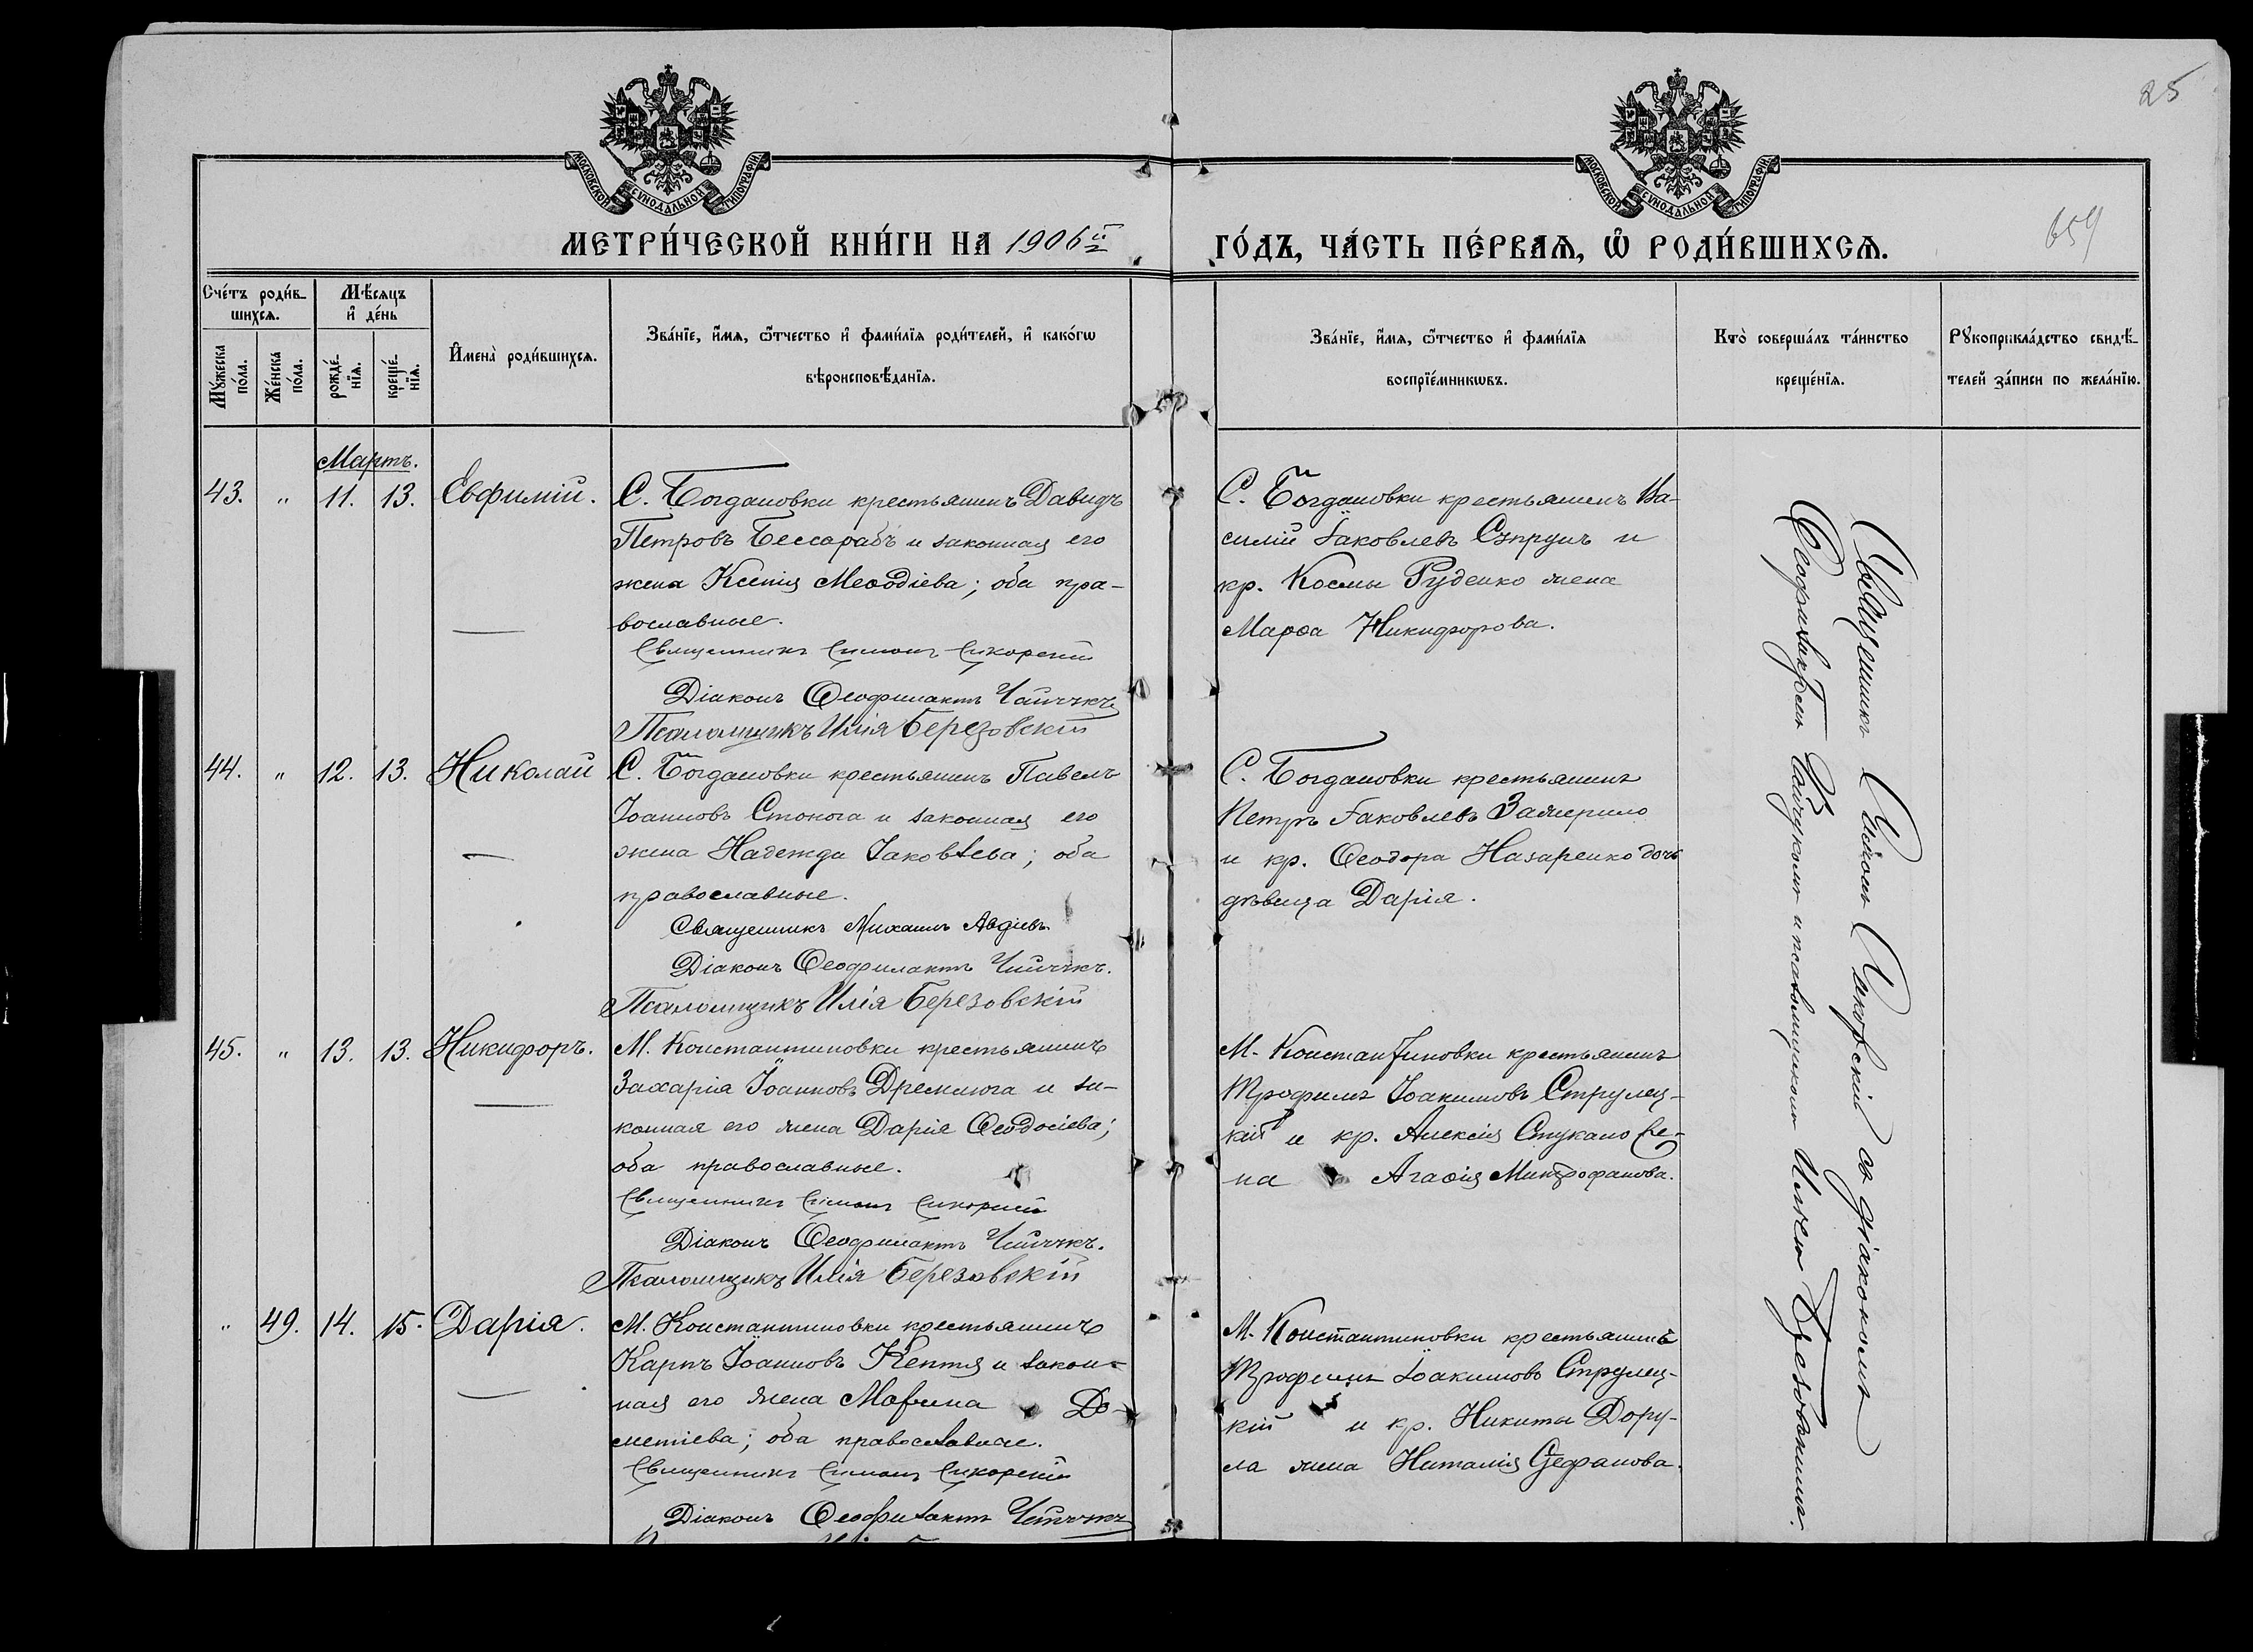 25
659
МОСКОВСКОЙ СѴНОДАЛЬНОЙ ТИПОГРАФІИ.
МОСКОВСКОЙ СѴНОДАЛЬНОЙ ТИПОГРАФІИ.
МЕТРИ́ЧЕСКОЙ КНИ́ГИ НА 1906й
ГО́ДЪ, ЧА́СТЬ ПЕ́РВАЯ, Ѡ҆ РОДИ́ВШИХСЯ.
Сче́тъ роди́в-
шихсѧ.
Мꙋ́жеска
по́ла.
Же́нска
по́ла.
Мѣ́сѧцъ
и҆ де́нь
рожде́-
нїѧ.
креще́-
нїѧ.
И҆мена̀ роди́вшихсѧ.
Зва́нїе, и҆́мѧ, ѻ҆́тчество и҆ фами́лїѧ роди́телей, и҆ како́гѡ
вѣроисповѣ́данїѧ.
Зва́нїе, и҆́мѧ, ѻ҆́тчество и҆ фами́лїѧ
воспрїе́мникѡвъ.
Кто̀ соверша́лъ та́инство
креще́нїѧ.
Рꙋкоприкла́дство свидѣ́-
телей за́писи по жела́нїю.
Мартъ.
43. " 11. 13. Евфимій.
С. Богдановки крестьянинъ Давидъ
Петровъ Бессарабъ и законная его
жена Ксенія Меѳодіева; оба пра-
вославные.
Священникъ Симонъ Сикорскій
Діаконъ Ѳеофилактъ Чайчукъ
Псаломщикъ Илія Березовскій
С. Богдановки крестьянинъ Ва-
силій Іаковлевъ Супрунъ и
кр. Космы Руденко жена
Марѳа Никифорова.
44. " 12. 13. Николай
С. Богдановки крестьянинъ Павелъ
Іоанновъ Стонога и законная его
жена Надежда Іаковлева; оба
православные.
Священникъ Михаилъ Авдіевъ
Діаконъ Ѳеофилактъ Чайчукъ.
Псаломщикъ Илія Березовскій
С. Богдановки крестьянинъ
Петръ Іаковлевъ
и кр. Ѳеодора Назаренко дочь
дѣвица Дарія.
45. " 13. 13. Никифоръ.
М. Константиновки крестьянинъ
Захарія Іоанновъ Дремлюга и за-
конная его жена Дарія Ѳеодосіева;
оба православные.
Священникъ Симонъ Сикорскій
Діаконъ Ѳеофилактъ Чайчукъ.
Псаломщикъ Илія Березовскій
М. Константиновки крестьянинъ
Трофимъ Іоакимовъ Струлец-
кій и кр. Алексія Стукало же-
на Агаѳія Митрофанова.
" 49. 14. 15. Дарія.
М. Константиновки крестьянинъ
Карпъ Іоанновъ Кептя и закон-
ная его жена Марина До-
метіева; оба православные.
Священникъ Симонъ Сикорскій
Діаконъ Ѳеофилактъ Чайчукъ
М. Константиновки крестьянинъ
Трофимъ Іоакимовъ Струлец-
кій и кр. Никиты Дору-
ла жена Наталія Стефанова.
Священникъ Симонъ Сикорскій съ діакономъ
Ѳеофилактомъ Чайчукомъ и псаломщикомъ Иліею Березовскимъ.